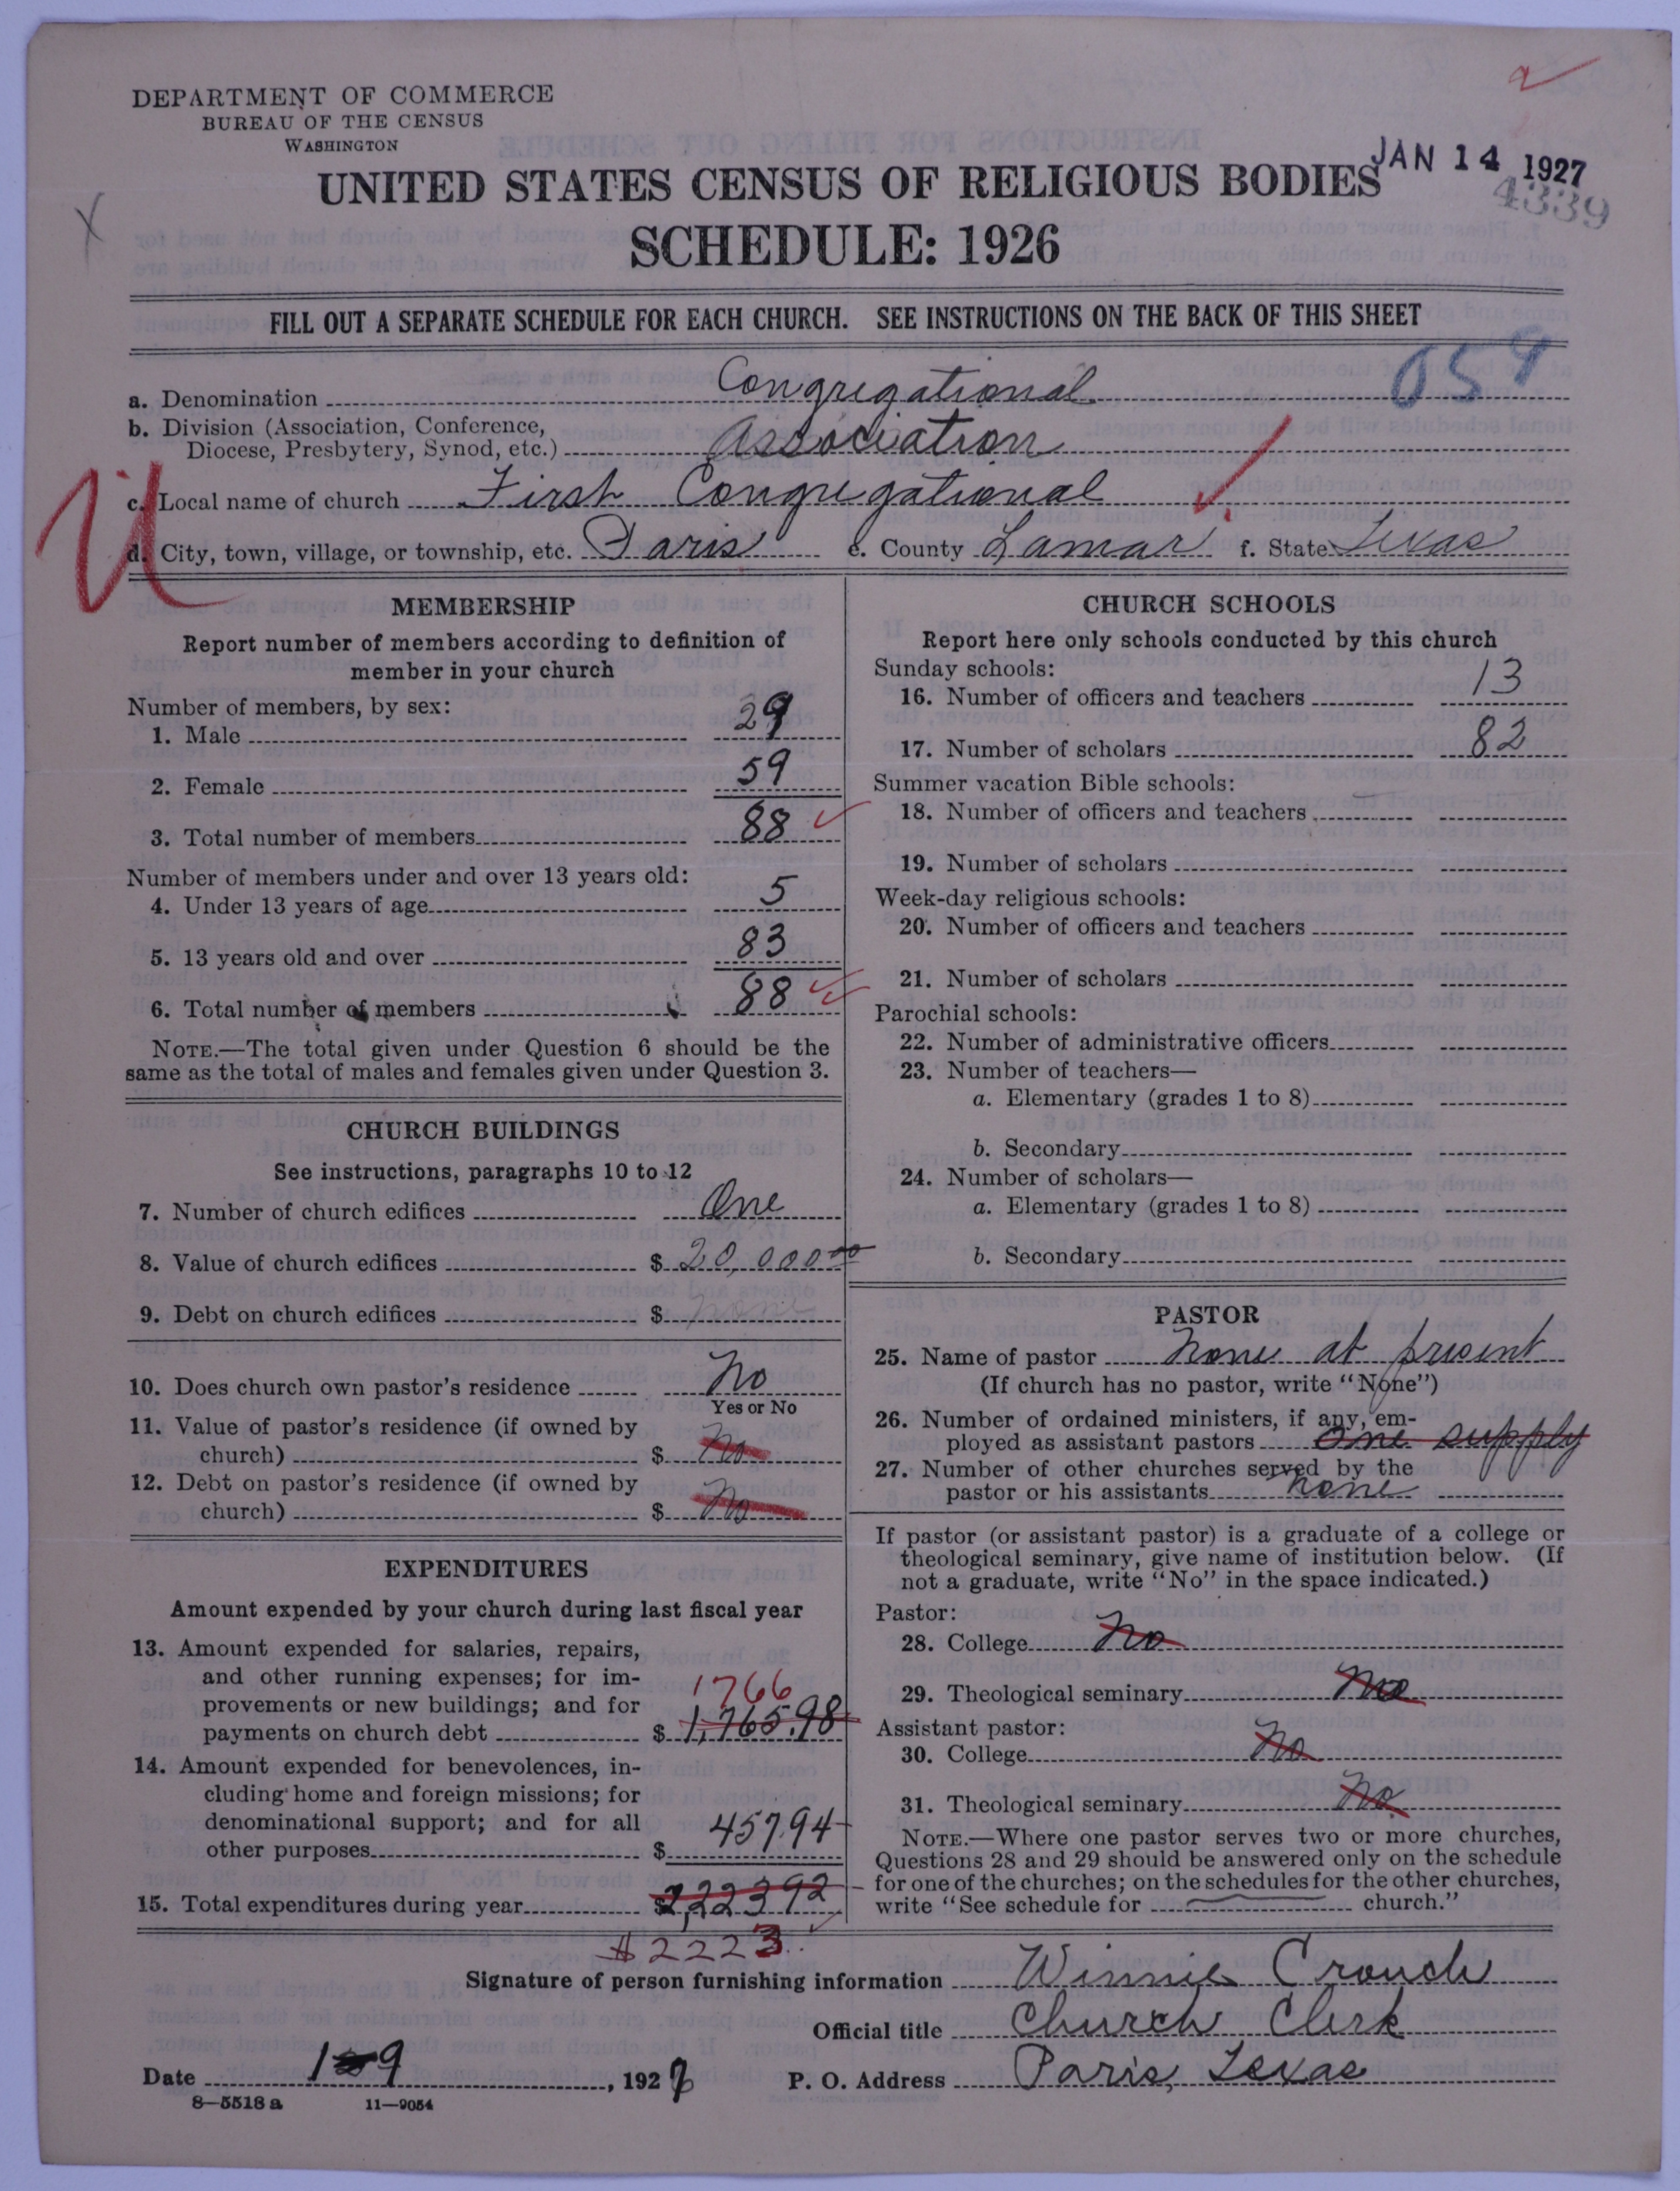 DEPARTMENT OF COMMERCE
BUREAU OF THE CENSUS
WASHINGTON
JAN 14 1927
4339
UNITED STATES CENSUS OF RELIGIOUS BODIES
SCHEDULE: 1926
FILL OUT A SEPARATE SCHEDULE FOR EACH CHURCH. SEE INSTRUCTIONS ON THE BACK OF THIS SHEET
059
a. Denomination Congregational
b. Division (Association, Conference,
Diocese, Presbytery, Synod, etc.) Association
c. Local name of church First Congregational
d. City, town, village, or township, etc. Paris e. County Lamar f. State Texas
MEMBERSHIP
Report number of members according to definition of
member in your church
Number of members, by sex:
1. Male 29
2. Female 59
3. Total number of members 88
Number of members under and over 13 years old:
4. Under 13 years of age 5
5. 13 years old and over 83
6. Total number of members 88
NOTE.—The total given under Question 6 should be the
same as the total of males and females given under Question 3.
CHURCH BUILDINGS
See instructions, paragraphs 10 to 12
7. Number of church edifices One
8. Value of church edifices $ 20,000.00
9. Debt on church edifices $ none
10. Does church own pastor's residence No
Yes or No
11. Value of pastor's residence (if owned by
church) $ No
12. Debt on pastor's residence (if owned by
church) $ No
EXPENDITURES
Amount expended by your church during last fiscal year
13. Amount expended for salaries, repairs,
and other running expenses; for im-
provements or new buildings; and for 1766
payments on church debt $ 1,765.98
14. Amount expended for benevolences, in-
cluding home and foreign missions; for
denominational support; and for all
other purposes $ 457.94
15. Total expenditures during year $2,223 92
$2223
CHURCH SCHOOLS
Report here only schools conducted by this church
Sunday schools:
16. Number of officers and teachers 13
17. Number of scholars 82
Summer vacation Bible schools:
18. Number of officers and teachers
19. Number of scholars
Week-day religious schools:
20. Number of officers and teachers
21. Number of scholars
Parochial schools:
22. Number of administrative officers
23. Number of teachers—
a. Elementary (grades 1 to 8)
b. Secondary
24. Number of scholars—
a. Elementary (grades 1 to 8)
b. Secondary
PASTOR
25. Name of pastor None at present
(If church has no pastor, write "None")
26. Number of ordained ministers, if any, em-
ployed as assistant pastors One supply
27. Number of other churches served by the
pastor or his assistants none
If pastor (or assistant pastor) is a graduate of a college or
theological seminary, give name of institution below. (If
not a graduate, write "No" in the space indicated.)
Pastor:
28. College No
29. Theological seminary No
Assistant pastor:
30. College No
31. Theological seminary No
NOTE.—Where one pastor serves two or more churches,
Questions 28 and 29 should be answered only on the schedule
for one of the churches; on the schedules for the other churches,
write "See schedule for church."
Signature of person furnishing information Winnie Crouch
Official title Church Clerk
Date 1-9, 1927 P. O. Address Paris, Texas
8—5518 a 11—9054